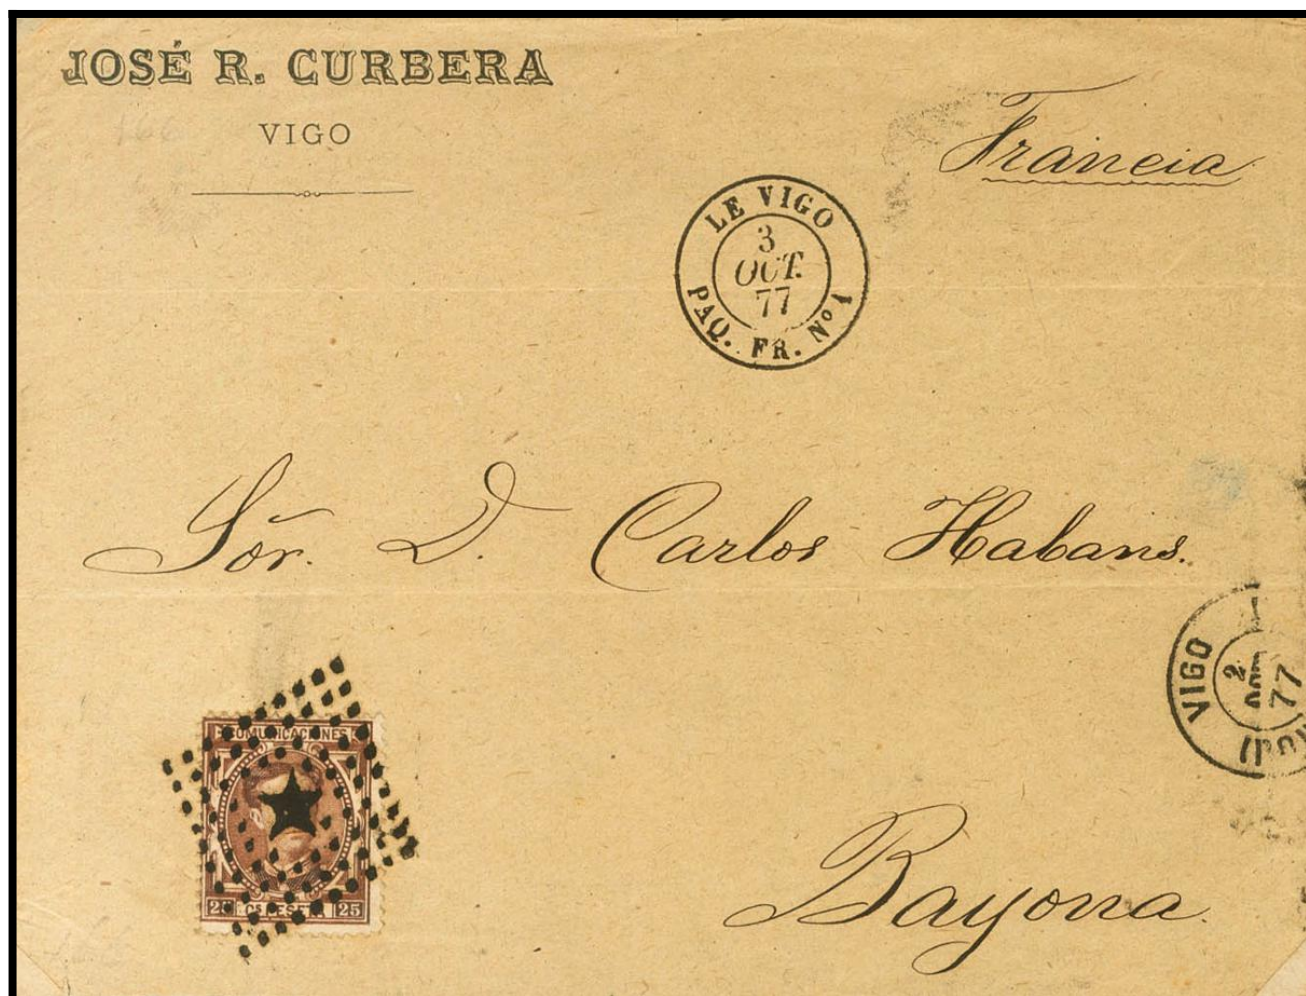 JOSÉ R. CURBERA
VIGO
Francia
LE VIGO
3
OCT.
77
PAQ. FR. Nº 1
Sõr. D. Carlos Habans.
VIGO
2
77
COMUNICACIONES
25 Cs PESETA 25
Bayona